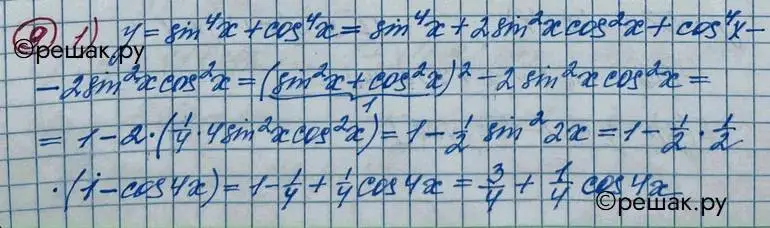 9 1) y = sin⁴x + cos⁴x = sin⁴x + 2sin²x cos²x + cos⁴x -
©решак.ру
- 2sin²x cos²x = (sin²x + cos²x)² - 2 sin²x cos²x =
1
= 1 - 2·(1/4·4sin²x cos²x) = 1 - 1/2 sin²2x = 1 - 1/2 · 1/2
·(1 - cos4x) = 1 - 1/4 + 1/4 cos4x = 3/4 + 1/4 cos4x
©решак.ру